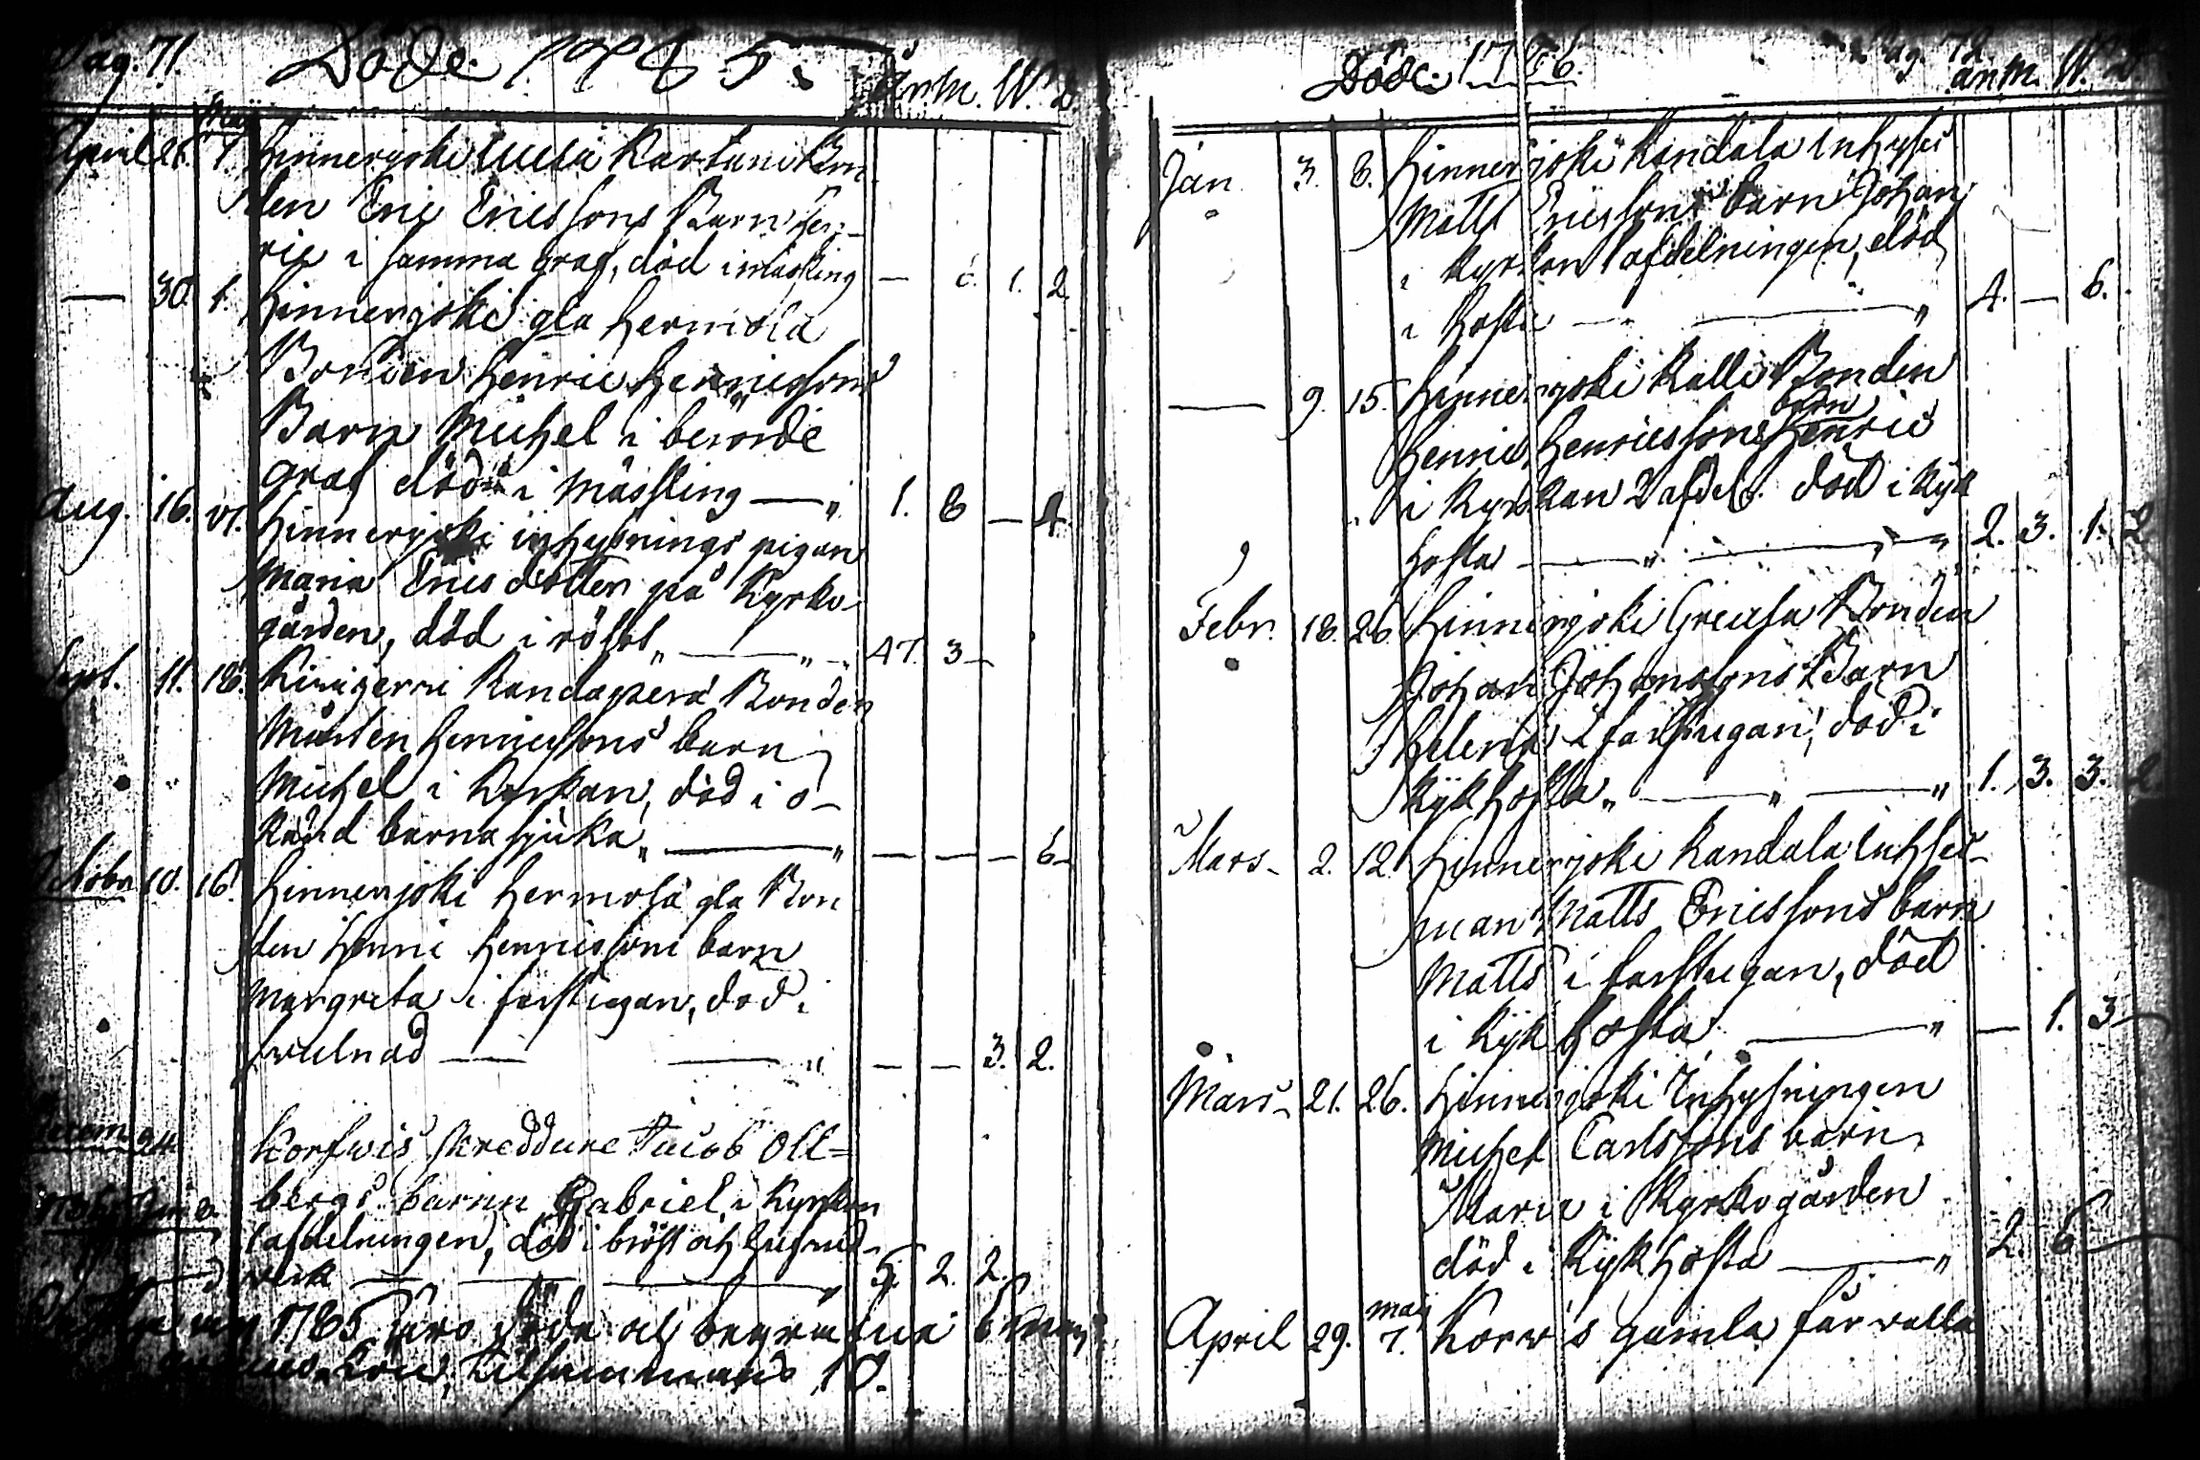 Pag. 71. Döde 1785. år. m. W. d.
May
April 26. 7. Hinnerjoki Uusi Kartani Bon-
den Eric Ericssons Barn Hen-
ric i samma graf, död i mässling — 6. 1. 2.
— 30. 1. Hinnerjoki gla Hermola
Bonden Henric Henricssons
Barn Michel i berörde
graf död i Mässling — „ 1. 8 — 4.
Aug. 16. 21. Hinnerjoki inhysnings pigan
Maria Ericsdotter på Kyrko-
gården, död i rötsot „ — „ 47. 3 —
Sept. 11. 18. Bonden
Mårten Henricssons barn
Michel i Kyrkan, död i o-
känd barnasjuka „ — „ — — — 6 —
Octobr 10. 16. Hinnerjoki Hermola gla Bon
den Henric Henricssons barn
Margreta i farstugan, död i
svulnad — — „ — — 3. 2.
Decem 24 Korfwis skreddare Jacob Oll=
bergs barn Gabriel i Kyrkan
1 afdelningen, död i bröst och hufwud-
werk — — — „ 5. 2. 2.
1785 äro döde och begrafne 6 man
Kön, tilsammans 10.
Döde 1786. Pag. 72 år. m. W. d
Jan 3. 8. Hinnerjoki Kandola Inhyses
Matts Ericssons barn Johan
i Kyrkan 1 afdelningen, död
i hosta — — „ 4. — 6.
— 9. 15. Hinnerjoki Kalli Bonden
barn
Henric Henricssons Henric
i Kyrkan 2 afdel. död i Kyk
hosta — „ — „ 2. 3. 1. 2
Febr. 18. 26 Hinnerjoki Greusa Bonden
Johan Johanssons Barn
Helena i farstugan, död i
Kykhosta „ — „ — „ 1. 3. 3. 2
Mars - 2. 12. Hinnerjoki Kandola Inhses-
man Matts Ericssons barn
Matts i farstugan, död
i Kykhosta — „ — 1. 3 —
Mars - 21. 26. Hinnerjoki Inhysningen
Michel Carlssons barn
Maria i Kyrkogården
död i Kykhosta — „ 2. 6 —
may
April 29. 7. Korvis gamla får walla